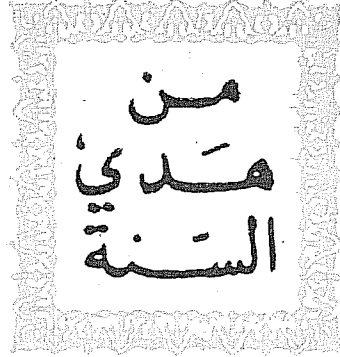 من
هَدي
السَنة